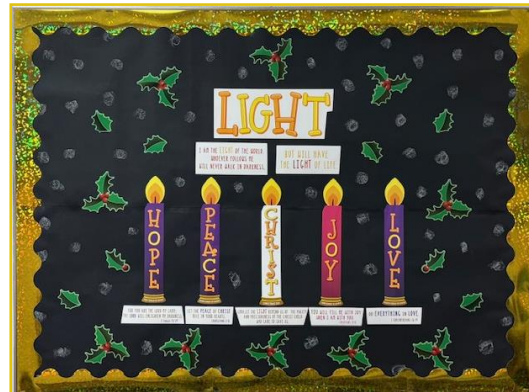 LIGHT
I AM THE LIGHT OF THE WORLD.
WHOEVER FOLLOWS ME
WILL NEVER WALK IN DARKNESS,
BUT WILL HAVE
THE LIGHT OF LIFE.
HOPE
PEACE
CHRIST
JOY
LOVE
LET THE PEACE OF CHRIST
YOU WILL FILL ME WITH JOY
WHEN I AM WITH YOU.
DO EVERYTHING IN LOVE.